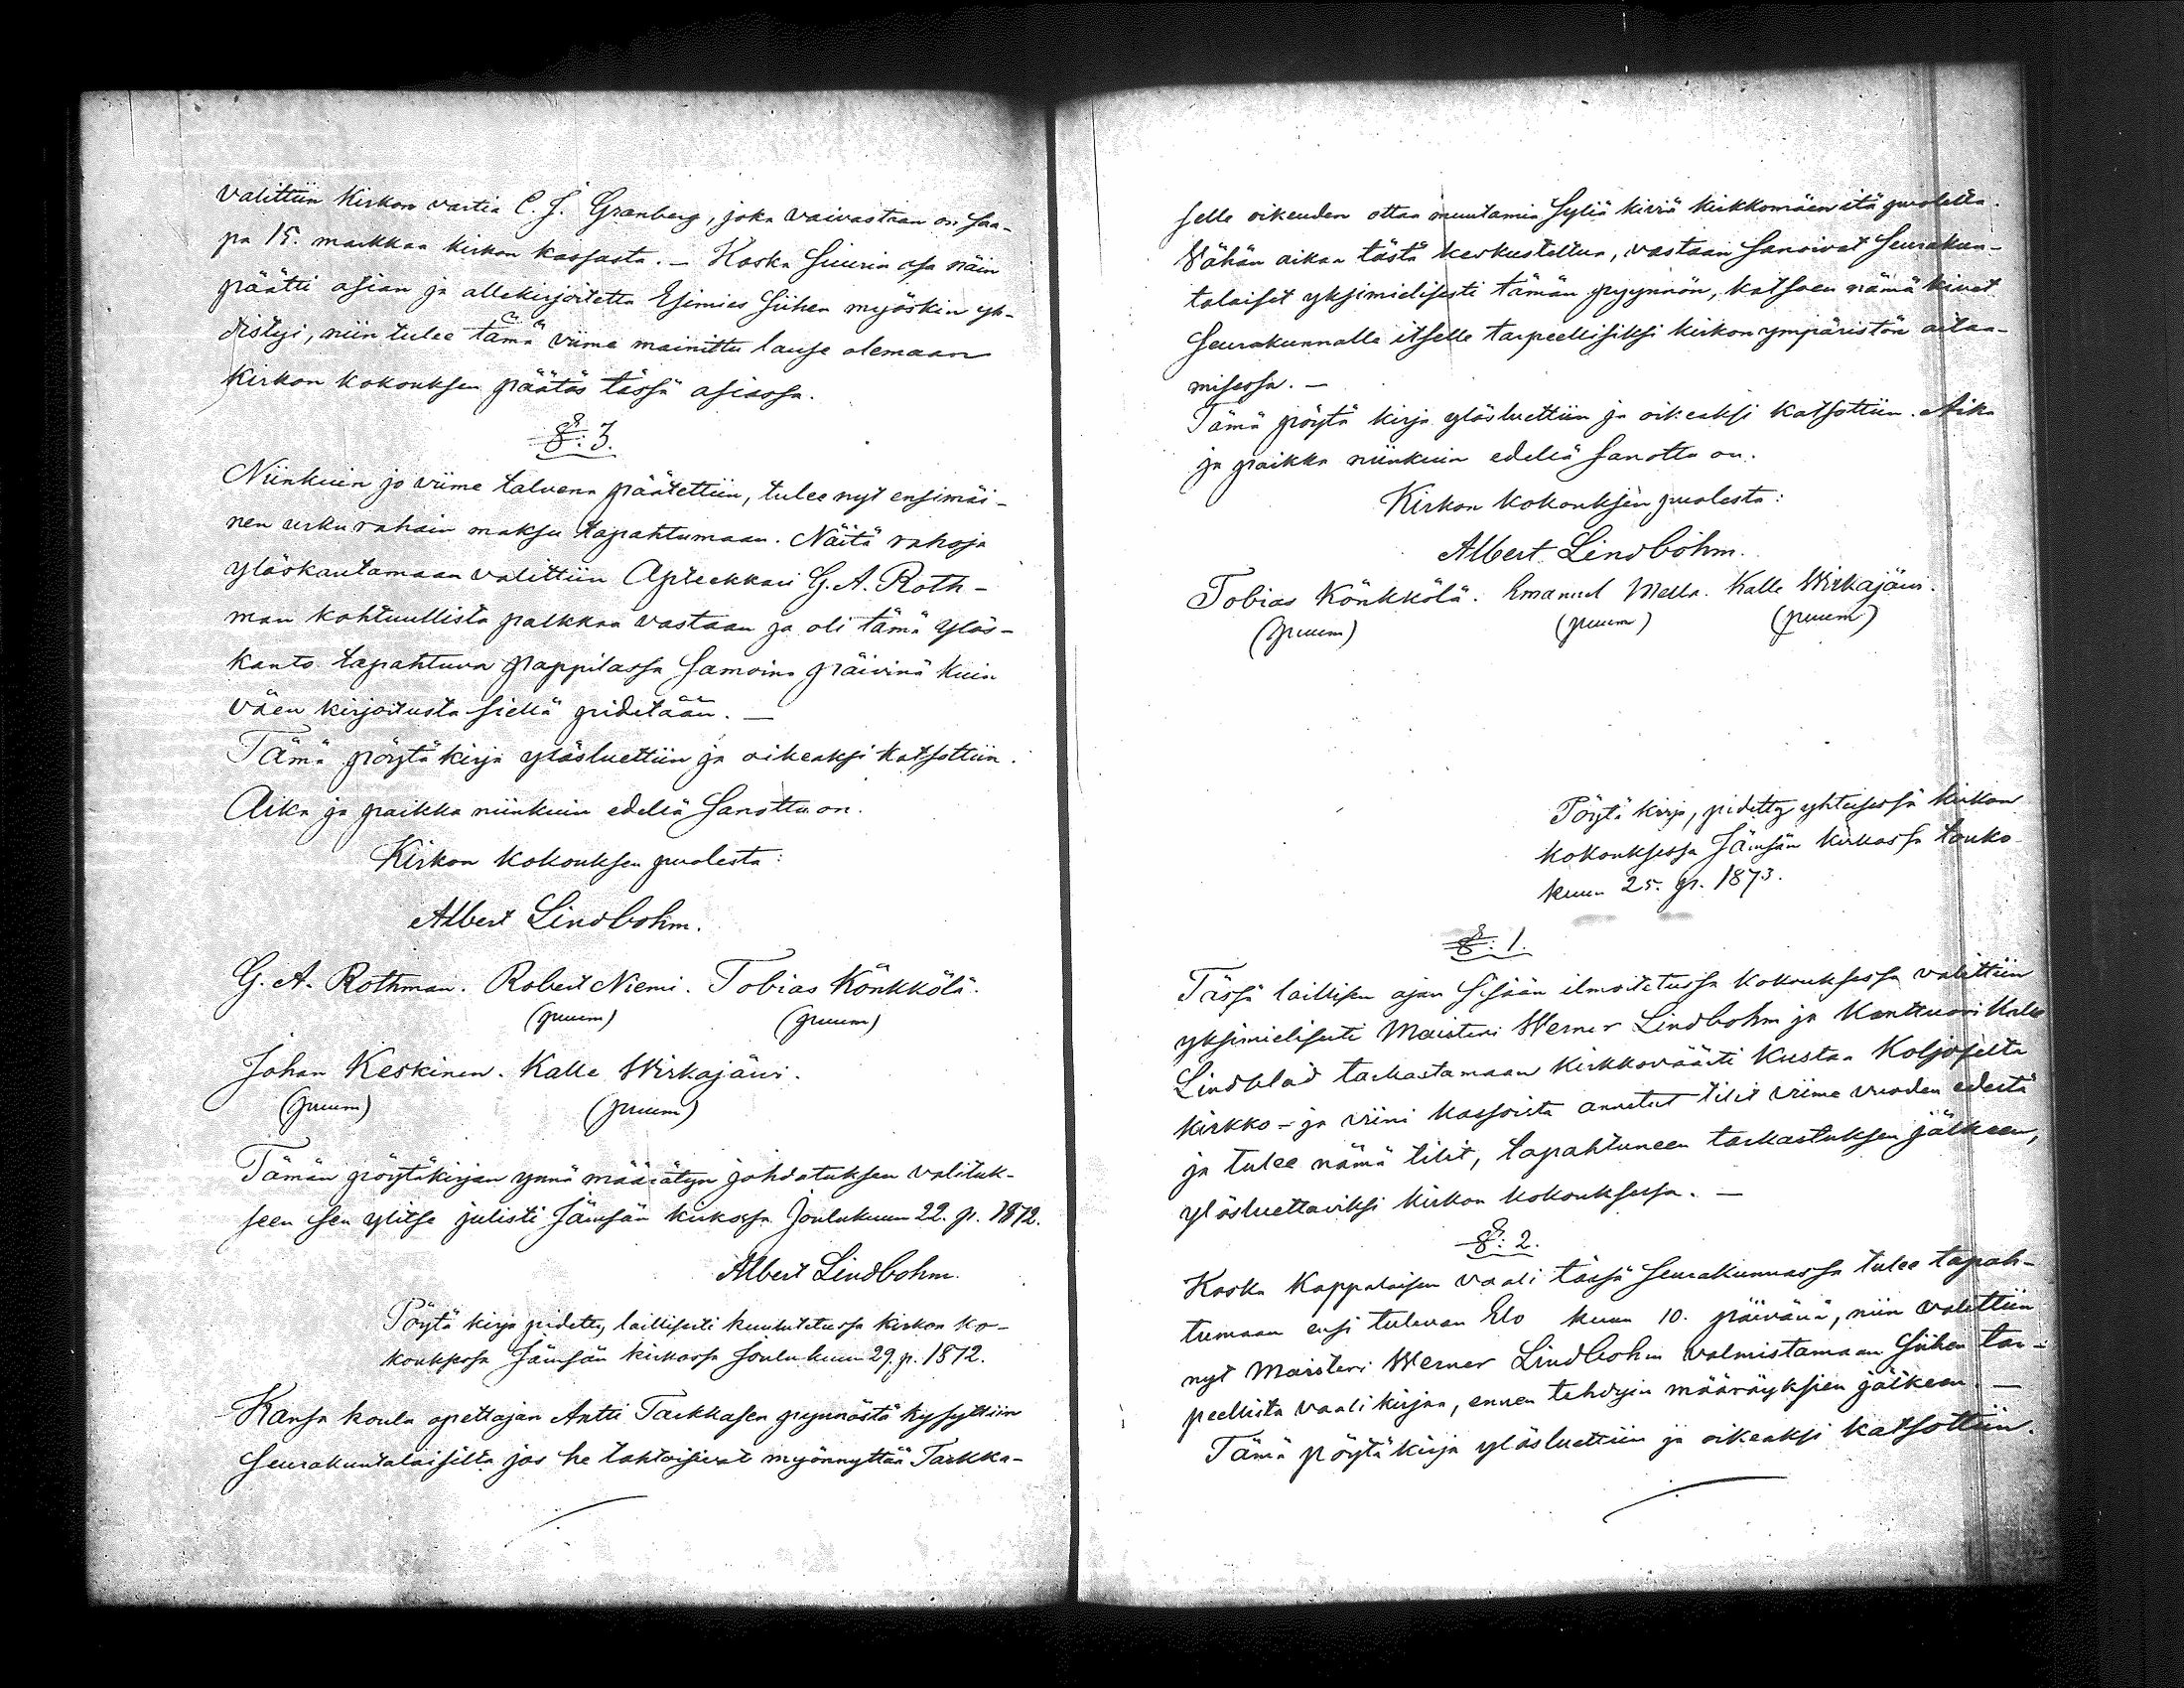 valittiin Kirkon vartia C. J. Granberg, joka vaivastaan on saa-
pa 15. markkaa kirkon kassasta. — Koska Suurin osa näin
päätti asian ja allekirjoitettu Esimies siihen myöskin yh-
distyi, niin tulee tämä viime mainittu lause olemaan
Kirkon kokouksen päätös tässä asiassa.
§: 3.
Niinkuin jo viime talvena päätettiin, tulee nyt ensimäi-
nen urku rahain maksu tapahtumaan. Näitä rahoja
ylöskantamaan valittiin Apteekkari G. A. Roth-
man kohtuullista palkkaa vastaan ja oli tämä ylös-
kanto tapahtuva pappilassa samoina päivinä kuin
väen kirjoitusta siellä pidetään. —
Tämä pöytäkirja ylösluettiin ja oikeaksi katsottiin.
Aika ja paikka niinkuin edellä sanottu on.
Kirkon kokouksen puolesta:
Albert Lindbohm.
G. A. Rothman. Robert Niemi. Tobias Könkkölä.
(puum) (puum)
Johan Keskinen. Kalle Wirkajärvi.
(puum) (puum)
Tämän pöytäkirjan ynnä määrätyn johdatuksen valituk-
seen sen ylitse julisti Jämsän kirkossa Joulukuun 22. p. 1872.
Albert Lindbohm.
Pöytä kirja pidetty laillisesti kuulutetussa kirkon ko-
kouksessa Jämsän kirkossa Joulukuun 29. p. 1872.
Kansa koulu opettajan Antti Tarkkasen pyynnöstä kysyttiin
Seurakuntalaisilta jos he tahtoisivat myönnyttää Tarkka-
selle oikeuden ottaa muutamia Syliä kiviä kirkkomäen itä puolelta.
Vähän aikaa tästä keskusteltua, vastaan sanoivat Seurakun-
talaiset yksimielisesti tämän pyynnön, katsoen nämä kivet
Seurakunnalle itselle tarpeellisiksi kirkon ympäristön aitaa-
misessa. —
Tämä pöytä kirja ylösluettiin ja oikeaksi katsottiin. Aika
ja paikka niinkuin edellä sanottu on.
Kirkon kokouksen puolesta:
Albert Lindbohm.
Tobias Könkkölä. Emanuel Mella. Kalle Wirkajärvi.
(puum) (puum) (puum)
Pöytä kirja, pidetty yhteisessä kirkon
kokouksessa Jämsän kirkossa touko
kuun 25. p. 1873.
§: 1.
Tässä laillisen ajan sisään ilmoitetussa kokouksessa valittiin
yksimielisesti Maisteri Werner Lindbohm ja Kanttuori Kalle
Lindblad tarkastamaan kirkkoväärti Kustaa Koljoselta
kirkko- ja viini kassoista annetut tilit viime vuoden edestä
ja tulee nämä tilit, tapahtuneen tarkastuksen jälkeen,
ylösluettaviksi kirkon kokouksessa. —
§: 2.
Koska Kappalaisen vaali tässä Seurakunnassa tulee tapah-
tumaan ensi tulevan Elo kuun 10. päivänä, niin valittiin
nyt Maisteri Werner Lindbohm valmistamaan siihen tar-
peellista vaalikirjaa, ennen tehdyin määräyksien jälkeen. —
Tämä pöytäkirja ylösluettiin ja oikeaksi katsottiin.